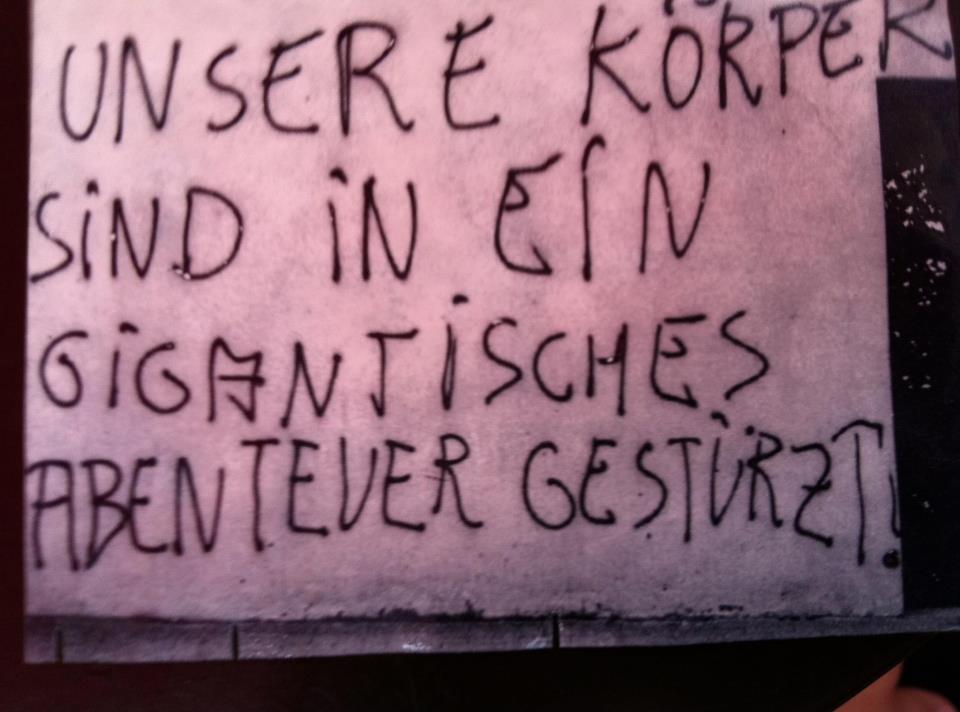 UNSERE KÖRPER
SiND iN EIN
GiGANTiSCHES
ABENTEUER GESTÜRZT!